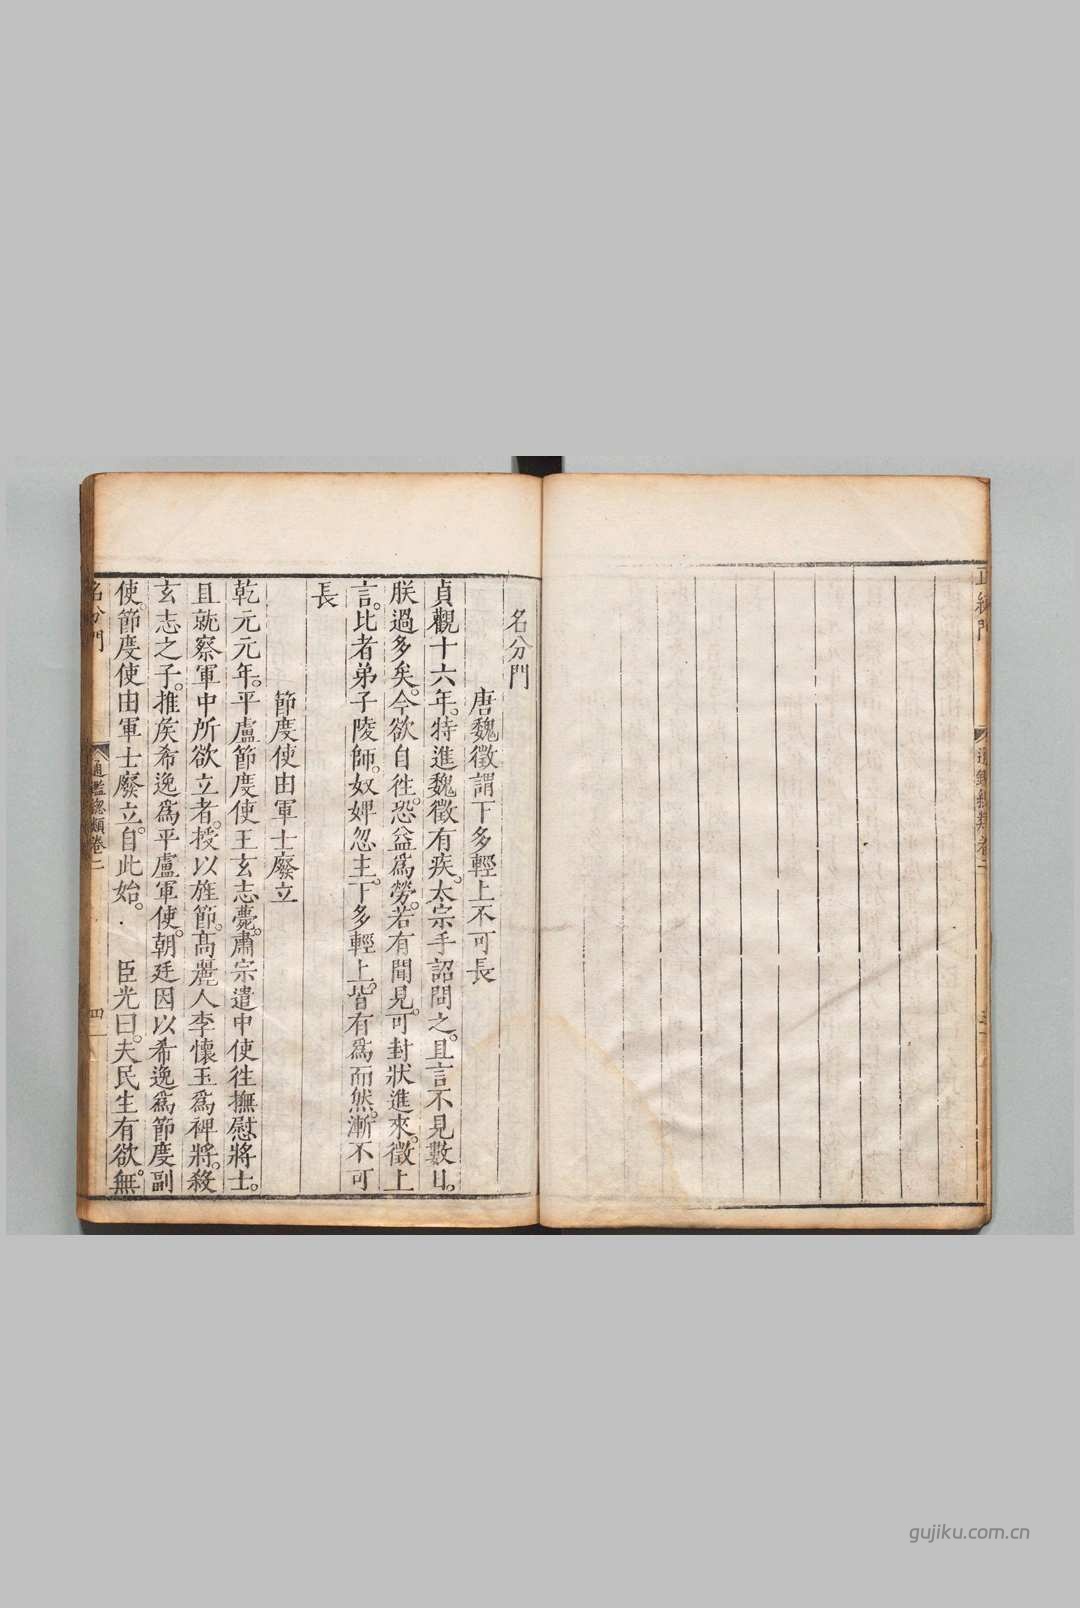 正統門
通鑑總類卷二
名分門
唐魏徵謂下多輕上不可長
貞觀十六年。特進魏徵有疾。太宗手詔問之。且言不見數日。
朕過多矣。今欲自徃。恐益爲勞。若有聞見。可封狀進來。徵上
言。比者弟子陵師。奴婢忽主。下多輕上。皆有爲而然。漸不可
長
節度使由軍士廢立
乾元元年。平盧節度使王玄志薨。肅宗遣中使徃撫慰將士。
且就察軍中所欲立者。授以旌節。高麗人李懷玉爲裨將。殺
玄志之子。推矦希逸爲平盧軍使。朝廷因以希逸爲節度副
使。節度使由軍士廢立。自此始。 臣光曰。夫民生有欲。無
名分門
通鑑總類卷二
四
gujiku.com.cn